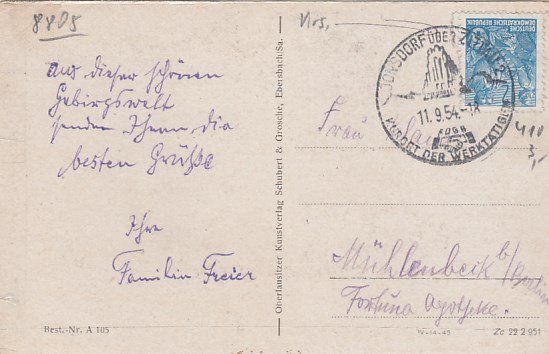 8805
aus dieser schönen
Gebirgswelt
senden Ihnen die
besten Grüße
Ihre
Familie Freier
Best.-Nr. A 105
Oberlausitzer Kunstverlag Schubert & Grosche, Ebersbach/Sa.
DEUTSCHE
DEMOKRATISCHE REPUBLIK
JONSDORF ÜBER ZITTAU
11.9.54.-18
FDGB
KURORT DER WERKTÄTIGEN
410
3,-
Frau
Mühlenbeck b/Berlin
Fortuna Apotheke.
W-14-45
Zc 22 2 951